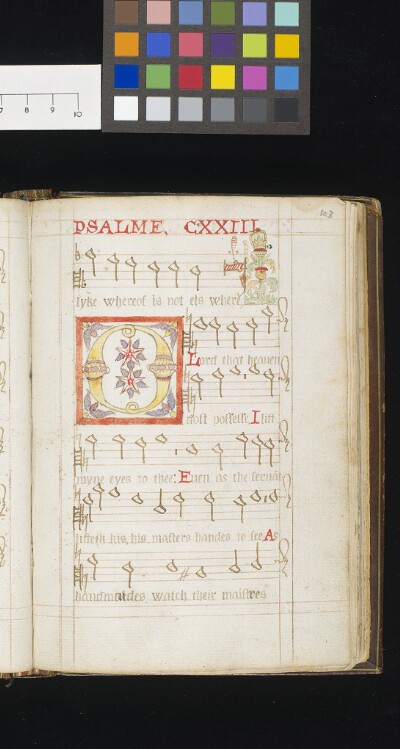 7 8 9 10
103
PSALME. CXXIII
lyke whereof is not els where
O Lord that heauen
dost possesse, I lift
myne eyes to thee: Euen as the seruãt
lifteth his, his masters handes to see As
handmaides watch their maistres